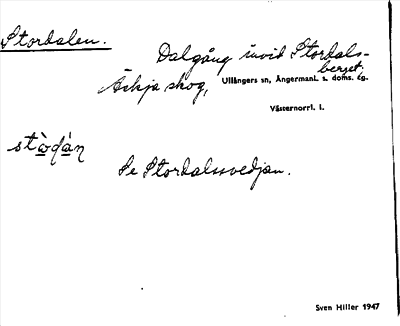 Stordalen.
Dalgång invid Stordals-
berget,
Äskja skog, Ullångers sn, Ångermanl. s. doms. fg.
Västernorrl. l.
stò̱dá̱n
Se Stordalssvedjan.
Sven Hiller 1947